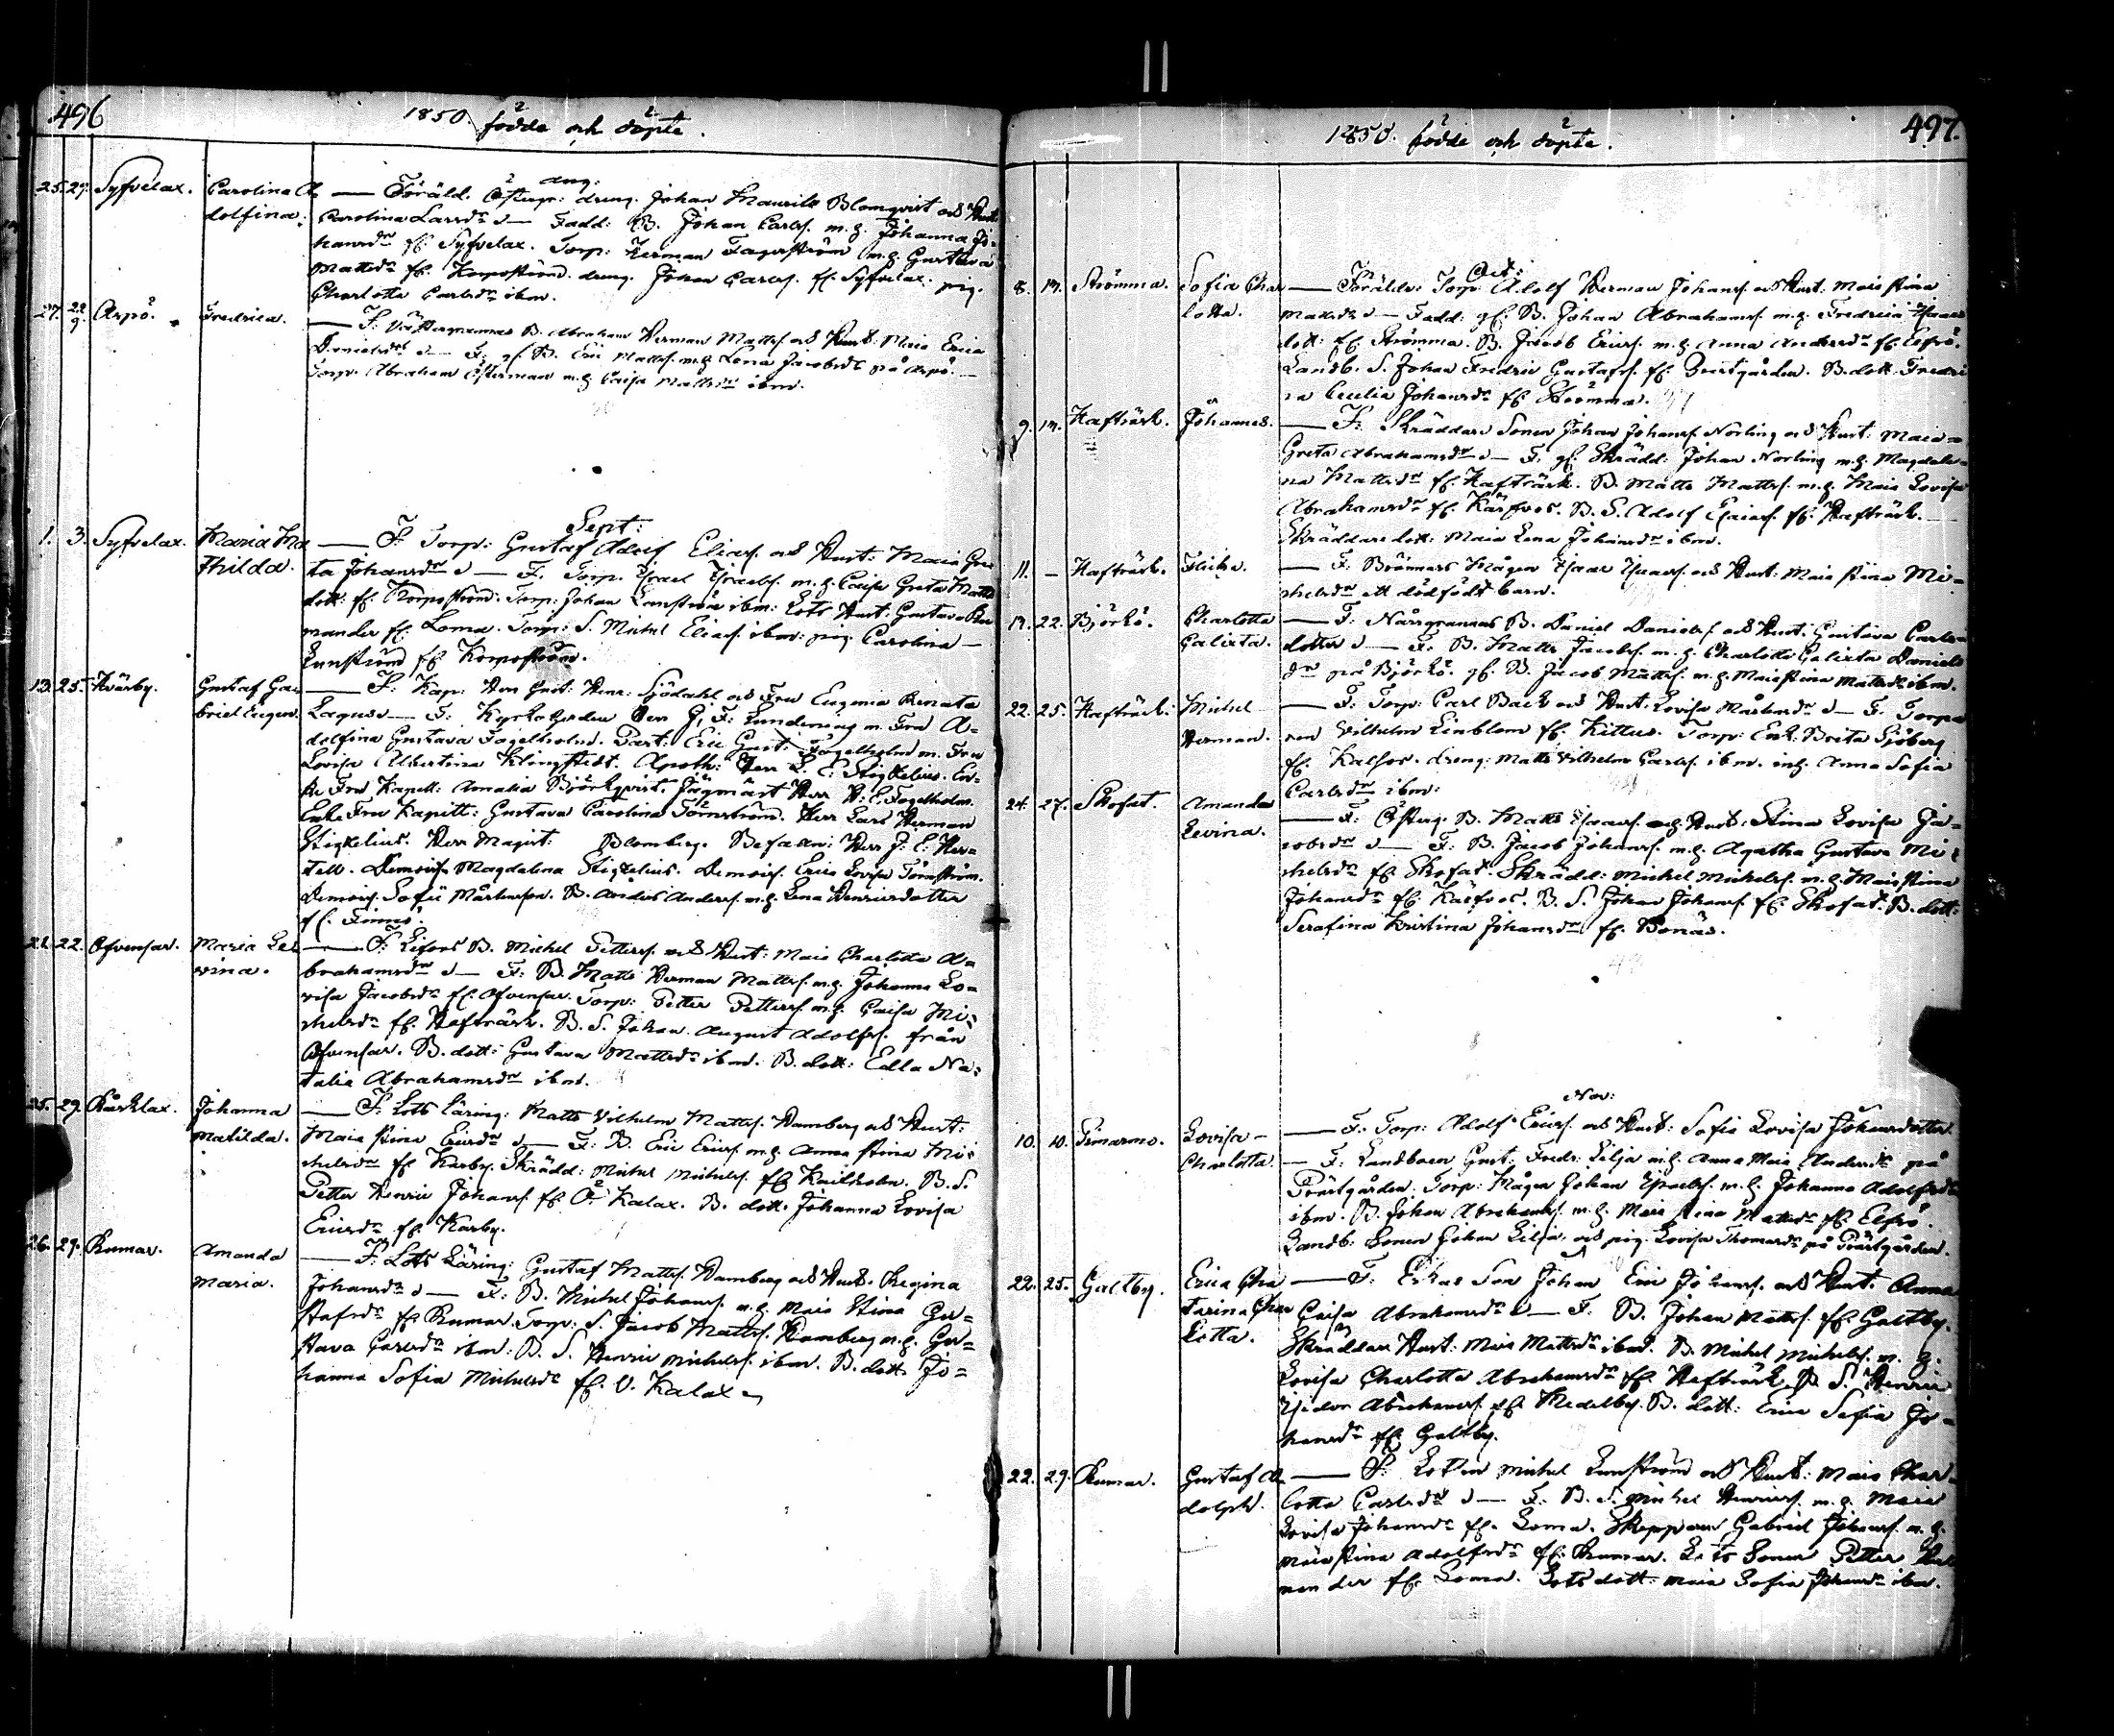 496
1850. födde och döpte.
Aug:
25. 29. Syfvelax. Carolina A — Föräld. dreng. Johan Blomqvist och Hust:
dolfina. Carolina Larsdr — Fadd: B. Johan Carlss. m.h. Johanna Jo-
hansdr fr. Syfvelax. Torp: Herman Fagerström m.h. Gustava
Mattsdr fr. Korpoström. dreng. Johan Carlss. fr. Syfvelax. pig.
Charlotta Carlsdr ibm.
27. Aspö. Fredrica. — F. B. Abraham Herman Mattss. och Hust: Maia Erica
Danielsdr — F. B. Eric Mattss. m.h. Lena Jacobsdr på Aspö.
Torp. Abraham Österman m.h. Caisa Mattsdr ibm.
Sept:
1. 3. Syfvelax. Maria Ma — F. Torp: Gustaf Adolf Eliass. och Hust: Maia Gre
thilda. ta Johansdr — F. Torp. Israel Israelss. m.h. Caisa Greta Matts
dott: fr. Korpoström. Torp: Johan ibm: Lots Hust: Gustava
mander fr. Loma. Torp: S. Michel Eliass. ibm: pig. Carolina
fr. Korpoström.
13. 25. Gustaf Ga — F. Kap: Herr Gust: Henr: Sjödahl och Fru Eugenia Renata
briel Eugen. Lagus — F: Kyrkoherden Herr J. F. m. Fru A-
dolfina Gustava Fogelholm. Eric Gust: Fogelholm m. Fru
Lovisa Albertina Klingstedt. Apoth: Herr L. E. Stigzelius. En-
ke Fru Kapell: Amalia Björkqvist. Herr Fogelholm.
Enke Fru Kapell: Gustava Carolina Törnström. Herr Lars Herman
Stigzelius. Herr Magist: Blomberg. Herr J. E. Her-
tell. Demois. Magdalena Stigzelius. Demois. Erica Lovisa Törnström.
Demois. Sofie B. Anders Anderss. m.h. Lena Henricsdotter
fr. Finnö.
21. 22. Ofvensar. Maria Le — F. B. Michel Petterss. och Hust: Maia Charlotta A-
vina. brahamsdr — F: B. Matts Herman Mattss. m.h. Johanna Lo-
visa Jacobsdr fr. Ofvensar. Torp: Petter Petterss. m.h. Caisa Mi-
chelsdr fr. Hafträsk. B. S. Johan August Adolfss. från
Ofvensar. B. dott: Gustava Mattsdr ibm. B. dott: Edla Na-
talia Abrahamsdr ibm.
25. 29. Johanna — F. Lots Läring: Matts Vilhelm Mattss. Hamberg och Hust:
Matilda. Maia Stina Ericsdr — F: B. Eric Ericss. m.h. Anna Stina Mi-
chelsdr fr. Karby. Skrädd: Michel Michelss. fr. B. S.
Petter Henric Johanss. fr. Ö. Kalax. B. dott. Johanna Lovisa
Ericsdr fr. Karby.
26. 29. Rumar. Amanda — F. Lots Läring: Gustaf Mattss. Hamberg och Hust. Regina
Maria. Johansdr — F: B. Michel Johanss. m.h. Maia Stina Gu-
stafsdr fr. Rumar. Torp: S. Jacob Mattss. Hamberg m.h. Gu-
stava Carlsdr ibm: B. S. Henric Michelss. ibm. B. dott. Jo-
hanna Sofia Michelsdr fr. V. Kalax
1850. födde och döpte.
497
Oct:
8. Strömma. Sofia Char — Föräldr: Torp: Adolf Herman Johanss. och Hust. Maia Stina
lotta. Mattsdr — Fadd: B. Johan Abrahamss. m.h. Fredrica Isaacs
dott: fr. Strömma. B. Jacob Ericss. m.h. Anna Andersdr fr. Elfsö.
Landb. S. Johan Fredric Gustafss. fr. Prestgården. B. dott. Fredri
ca Cecilia Johansdr fr. Strömma.
9. Hafträsk. Johannes. — F. Skräddare Sonen Johan Johanss. Norling och Hust: Maia
Greta Abrahamsdr — F. Skrädd: Johan Norling m.h. Magdale-
na Mattsdr fr. Hafträsk. B. Matts Mattss. m.h. Maia Lovisa
Abrahamsdr fr. Kärfvos. B. S. Adolf Esaiass. fr. Hafträsk.
Skräddare dott: Maia Lena Johansdr ibm.
11. — Hafträsk. Flicka. — F: Mågen Isaac Isaacss. och Hust: Maia Stina Mi-
chelsdr ett dödfödt barn.
22. Björkö. Charlotta — F: B. Daniel Danielss. och Hust. Gustava Carls-
Calixta. dotter — F: B. Matts Jacobss. m.h. Charlotta Calixta Daniels
dr på Björkö. B. Jacob Mattss. m.h. Maia Stina Mattsdr ibm.
22. 25. Hafträsk: Michel — F: Torp: Carl Back och Hust. Lovisa — F. Torpa
Herman. ren Vilhelm Lindblom fr. Kittus. Torp: Enk: Brita Sjöberg
fr. dreng: Matts Vilhelm Carlss. ibm. Anna Sofia
Carlsdr ibm:
24. 27. Skofat. Amanda — F: B. Matts Isaacss. och Hust: Stina Lovisa Ja-
Levina. cobsdr — F: B. Jacob Johanss. m.h. Agatha Gustava Mi-
chelsdr fr. Skofat. Skrädd: Michel Michelss. m.h. Maia Stina
Johansdr fr. Kärfvos. B. S. Johan Johanss. fr. Skofat. B. dott:
Serafina Kristina Johansdr fr. Bonäs.
Nov:
10. 10. Finnarmo. Lovisa — F: Torp: Adolf Ericss. och Hust: Sofia Lovisa Johansdotter.
Charlotta. — F: Landboen Gust: Fredr: Lilja m.h. Anna Maia Andersdr på
Prästgården. Torp: Mågen Johan Israelss. m.h. Johanna Adolfsdr
ibm. B. Johan Abrahamss. m.h. Maia Stina Mattsdr fr. Elfsö.
Landb: Sonen Johan Lilja och pig. Lovisa Thomasdr på Prästgården.
22. 25. Galtby. Erica Cha — F: Son Johan Eric Johanss. och Hust. Anna
tarina Char Caisa Abrahamsdr — F. B. Johan Mattss. fr. Galtby.
lotta. Skräddare Hust: Maia Mattsdr ibm. B. Michel Michelss. m.h.
Lovisa Charlotta Abrahamsdr fr. Hafträsk. B. S. Henric
Isidor Abrahamss. fr. Medelby. B. dott: Erica Sofia Jo-
hansdr fr. Galtby.
22. 29. Rumar. Gustaf A — F: Lotsen Michel och Hust: Maia Char-
dolph. lotta Carlsdr — F: B. S. Michel Henricss. m.h. Maia
Lovisa Johansdr fr. Loma. Skepparen Gabriel Johanss. m.h.
Maia Stina Adolfsdr fr. Rumar. Lots Sonen Petter
mander fr. Loma. Lots dott: Maia Sofia Johansdr ibm.